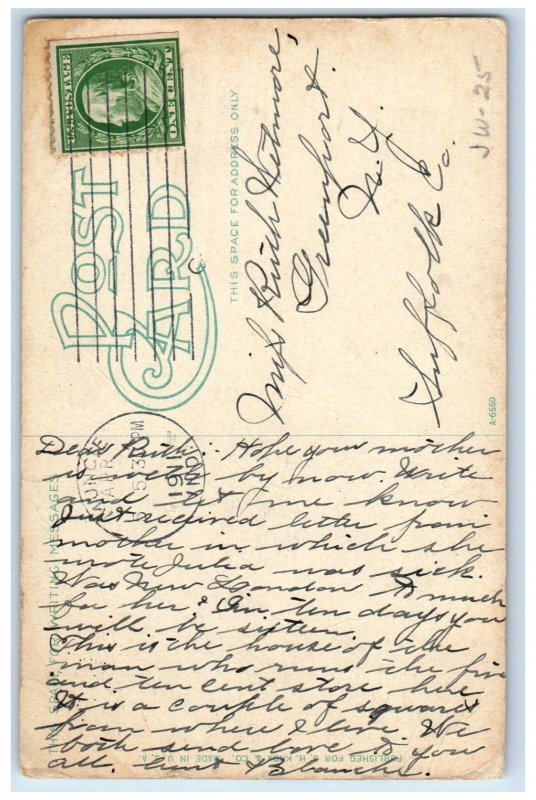 U.S. POSTAGE
ONE CENT
POST CARD
THIS SPACE FOR ADDRESS ONLY
Miss Ruth Wetmore,
Greenport.
N.Y.
Suffolk Co.
JW-25
A-6550
MUNCIE
5 30 PM
1911
IND.
THIS SPACE FOR WRITING MESSAGES
Dear Ruth:- Hope your mother
is well by now. Write
and let me know
Just received letter from
mother in which she
wrote Julia was sick.
Was New London to much
for her? In ten days you
will be sixteen.
This is the house of the
man who runs the five
and ten cent store here
It is a couple of squares
from where I live. We
both send love to you
all. Aunt Blanche.
PUBLISHED FOR S. H. KNOX & CO. MADE IN U.S.A.